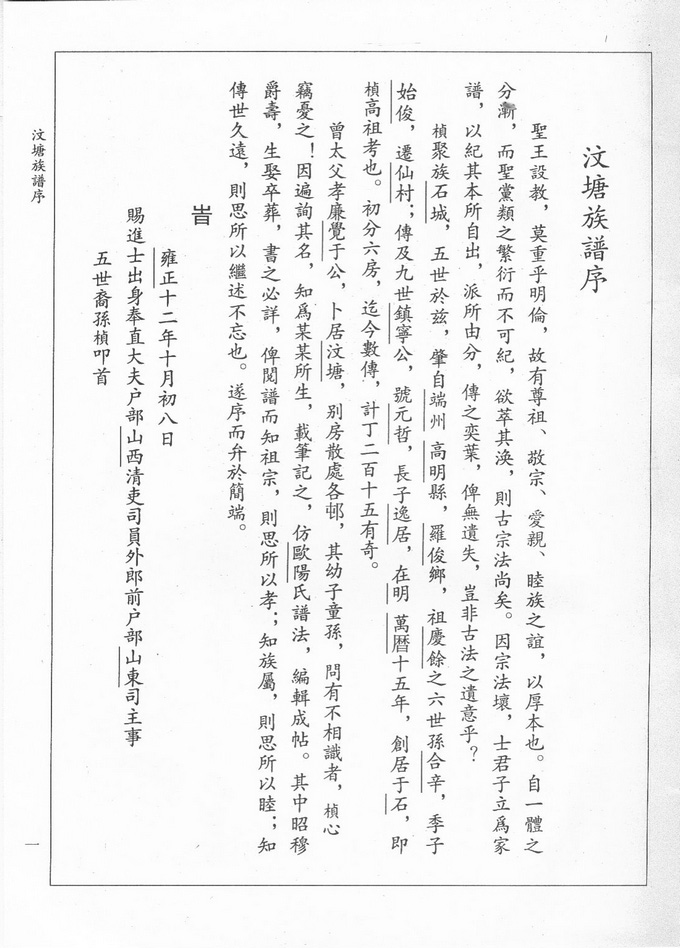 汶塘族譜序
聖王設教，莫重乎明倫，故有尊祖、敬宗、愛親、睦族之誼，以厚本也。自一體之
分漸，而聖黨類之繁衍而不可紀，欲萃其渙，則古宗法尚矣。因宗法壞，士君子立爲家
譜，以紀其本所自出，派所由分，傳之奕葉，俾無遺失，豈非古法之遺意乎？
楨聚族石城，五世於玆，肇自端州 高明縣，羅俊鄉，祖慶餘之六世孫合辛，季子
始俊，遷仙村；傳及九世鎮寧公，號元哲，長子逸居，在明 萬曆十五年，創居于石，即
楨高祖考也。初分六房，迄今數傳，計丁二百十五有奇。
曾太父孝廉覺于公，卜居汶塘，别房散處各邨，其幼子童孫，問有不相識者，楨心
竊憂之！因遍詢其名，知爲某某所生，載筆記之，仿歐陽氏譜法，編輯成帖。其中昭穆
爵壽，生娶卒葬，書之必詳，俾閱譜而知祖宗，則思所以孝；知族屬，則思所以睦；知
傳世久遠，則思所以繼述不忘也。遂序而弁於簡端。
旹
雍正十二年十月初八日
賜進士出身奉直大夫户部山西清吏司員外郎前户部山東司主事
五世裔孫楨叩首
汶塘族譜序
一